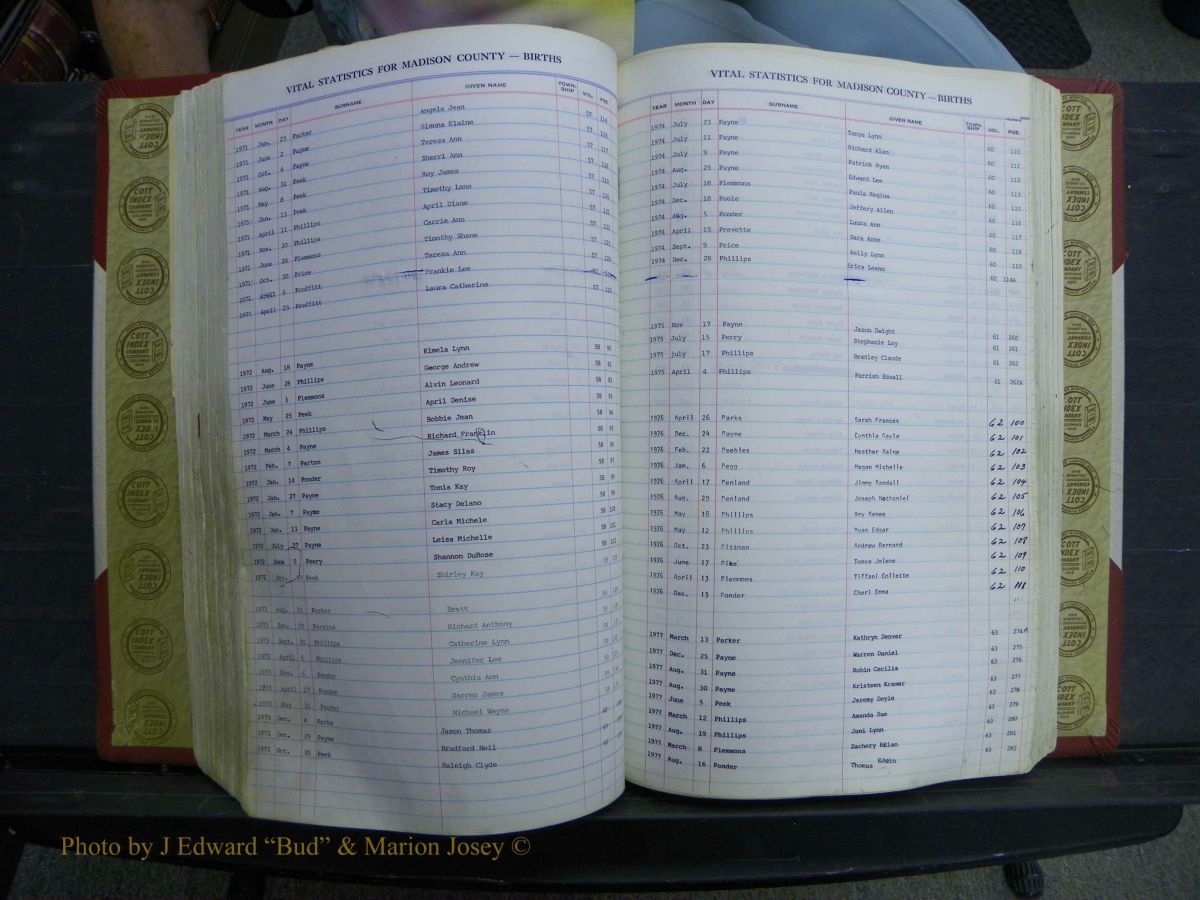 VITAL STATISTICS FOR MADISON COUNTY — BIRTHS
YEAR MONTH DAY SURNAME GIVEN NAME TOWN-SHIP VOL. PGE.
1971 Jan. 23 Parker Angela Jean 57 114
1971 June 2 Payne Glenna Elaine 57
1971 Oct. 4 Payne Teresa Ann 57 117
1971 Aug. 31 Peek Sherri Ann 57 118
1971 May 8 Peek Roy James 57 119
1971 Jan. 13 Peek Timothy Lane 57 120
1971 April 11 Phillips April Diane 57 121
1971 Nov. 30 Phillips Carrie Ann 57
1971 June 28 Plemmons Timothy Shane 57
1971 Oct. 30 Price Teresa Ann 57
1971 April 6 Proffitt Frankie Lee
1971 April 23 Proffitt Laura Catherine 57
1972 Aug. 18 Payne Kimela Lynn 58 90
1972 June 28 Phillips George Andrew 58 91
1972 June 3 Plemmons Alvin Leonard 58 92
1972 May 25 Peek April Denise 58 93
1972 March 24 Phillips Bobbie Jean 58 94
1972 March 4 Payne Richard Franklin 58 95
1972 Feb. 7 Parton James Silas 58 96
1972 Jan. 14 Ponder Timothy Roy 58 97
1972 Jan. 27 Payne Tonia Kay 58 98
1972 Jan. 7 Payne Stacy Delano 58 99
1972 Jan. 13 Payne Carla Michele 58 100
1972 July 27 Payne Leisa Michelle 58 101
1972 June 5 Peery Shannon DuBose 58 102
1972 Nov. Peek Shirley Kay
1973 Aug. 23 Parker Brett
1973 Jan. 29 Perkins Richard Anthony
1973 Sept. Phillips Catherine Lynn
1973 April 6 Phillips Jennifer Lee
1973 Nov. 6 Ponder Cynthia Ann
1973 April 17 Ponder Darren James
1973 May 31 Ponder Michael Wayne
1973 Dec. 4 Parks Jason Thomas
1973 Dec. 29 Payne Bradford Neil
1973 Oct. 30 Peek Raleigh Clyde
VITAL STATISTICS FOR MADISON COUNTY — BIRTHS
YEAR MONTH DAY SURNAME GIVEN NAME TOWN-SHIP VOL. PGE.
1974 July 23 Payne Tanya Lynn 60 110
1974 July 11 Payne Richard Alan 60 111
1974 July 9 Payne Patrick Ryan 60 112
1974 Aug. 25 Payne Edward Lee 60 113
1974 July 18 Plemmons Paula Regina 60 115
1974 Dec. 18 Poole Jeffery Allen 60 116
1974 Aug. 5 Ponder Laura Ann 60 117
1974 April 15 Prevette Dara Anne 60 118
1974 Sept. 9 Price Kelly Lynn 60 119
1974 Dec. 28 Phillips Erica Leann 60 114A
1975 Nov 17 Payne Jason Dwight 61 260
1975 July 15 Perry Stephanie Loy 61 261
1975 july 17 Phillips Bradley Claude 61 262
1975 April 4 Phillips Parrish Edsall 61 262A
1976 April 26 Parks Sarah Frances 62 100
1976 Dec. 24 Payne Cynthia Gayle 62 101
1976 Feb. 22 Peebles Heather Raine 62 102
1976 Jan. 6 Pegg Megan Michelle 62 103
1976 April 17 Penland Jimmy Randall 62 104
1976 Aug. 29 Penland Joseph Nathaniel 62 105
1976 May 18 Phillips Amy Renee 62 106
1976 May 12 Phillips Ryan Edgar 62 107
1976 Oct. 23 Pittman Andrew Bernard 62 108
1976 June 17 Pike Tonya Jolene 62 109
1976 April 13 Plemmons Tiffani Collette 62 110
1976 Dec. 13 Ponder Cheri Emma 62
1977 March 13 Parker Kathryn Denver 63 274A
1977 Dec. 25 Payne Warren Daniel 63 275
1977 Aug. 31 Payne Robin Cecilia 63 276
1977 Aug. 30 Payne Kristeen Kramer 63 277
1977 June 5 Peek Jeremy Doyle 63 278
1977 March 12 Phillips Amanda Sue 63 279
1977 Aug. 19 Phillips Joni Lynn 63 280
1977 March 8 Plemmons Zachery Brian 63 281
1977 Aug. 16 Ponder Thomas Edgin 63 282
COTT INDEX COMPANY
Photo by J Edward “Bud” & Marion Josey ©